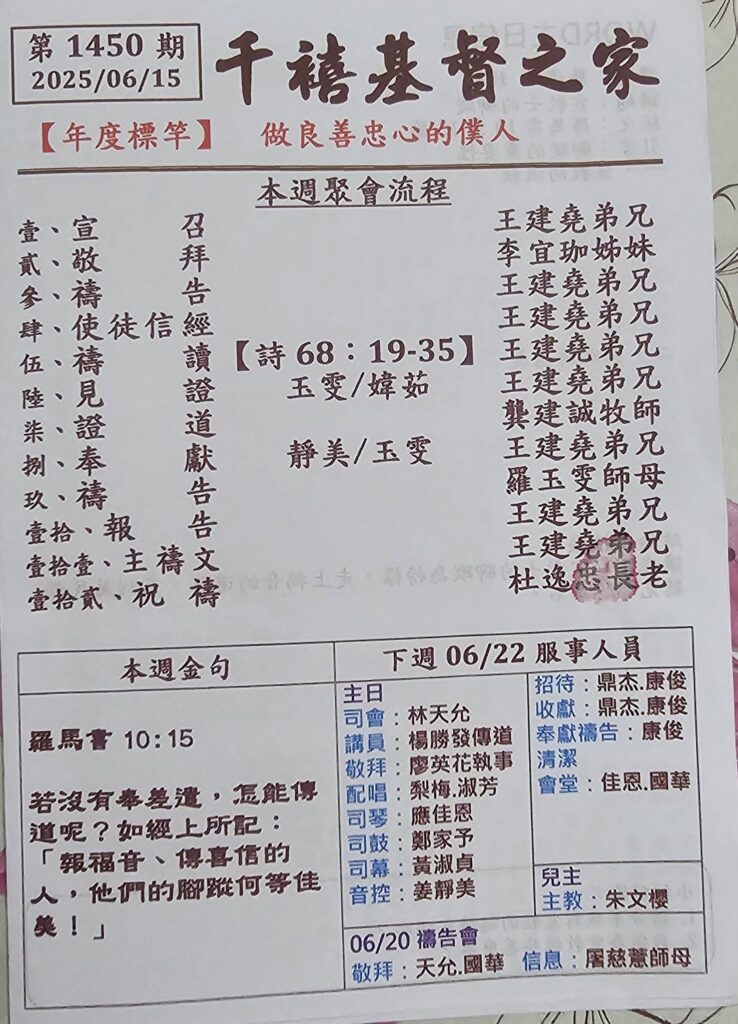 第 1450 期
2025/06/15
千禧基督之家
【年度標竿】 做良善忠心的僕人
本週聚會流程
壹、宣召 王建堯弟兄
貳、敬拜 李宜珈姊妹
參、禱告 王建堯弟兄
肆、使徒信經 王建堯弟兄
伍、禱讀 【詩 68：19-35】 王建堯弟兄
陸、見證 玉雯/媁茹 王建堯弟兄
柒、證道 龔建誠牧師
捌、奉獻 靜美/玉雯 王建堯弟兄
玖、禱告 羅玉雯師母
壹拾、報告 王建堯弟兄
壹拾壹、主禱文 王建堯弟兄
壹拾貳、祝禱 杜逸忠長老
本週金句
羅馬書 10:15
若沒有奉差遣，怎能傳
道呢？如經上所記：
「報福音、傳喜信的
人，他們的腳蹤何等佳
美！」
下週 06/22 服事人員
主日
司會：林天允
講員：楊勝發傳道
敬拜：廖英花執事
配唱：梨梅.淑芳
司琴：應佳恩
司鼓：鄭家予
司幕：黃淑貞
音控：姜靜美
招待：鼎杰.康俊
收獻：鼎杰.康俊
奉獻禱告：康俊
清潔
會堂：佳恩.國華
兒主
主教：朱文櫻
06/20 禱告會
敬拜：天允.國華 信息：屠慈薏師母